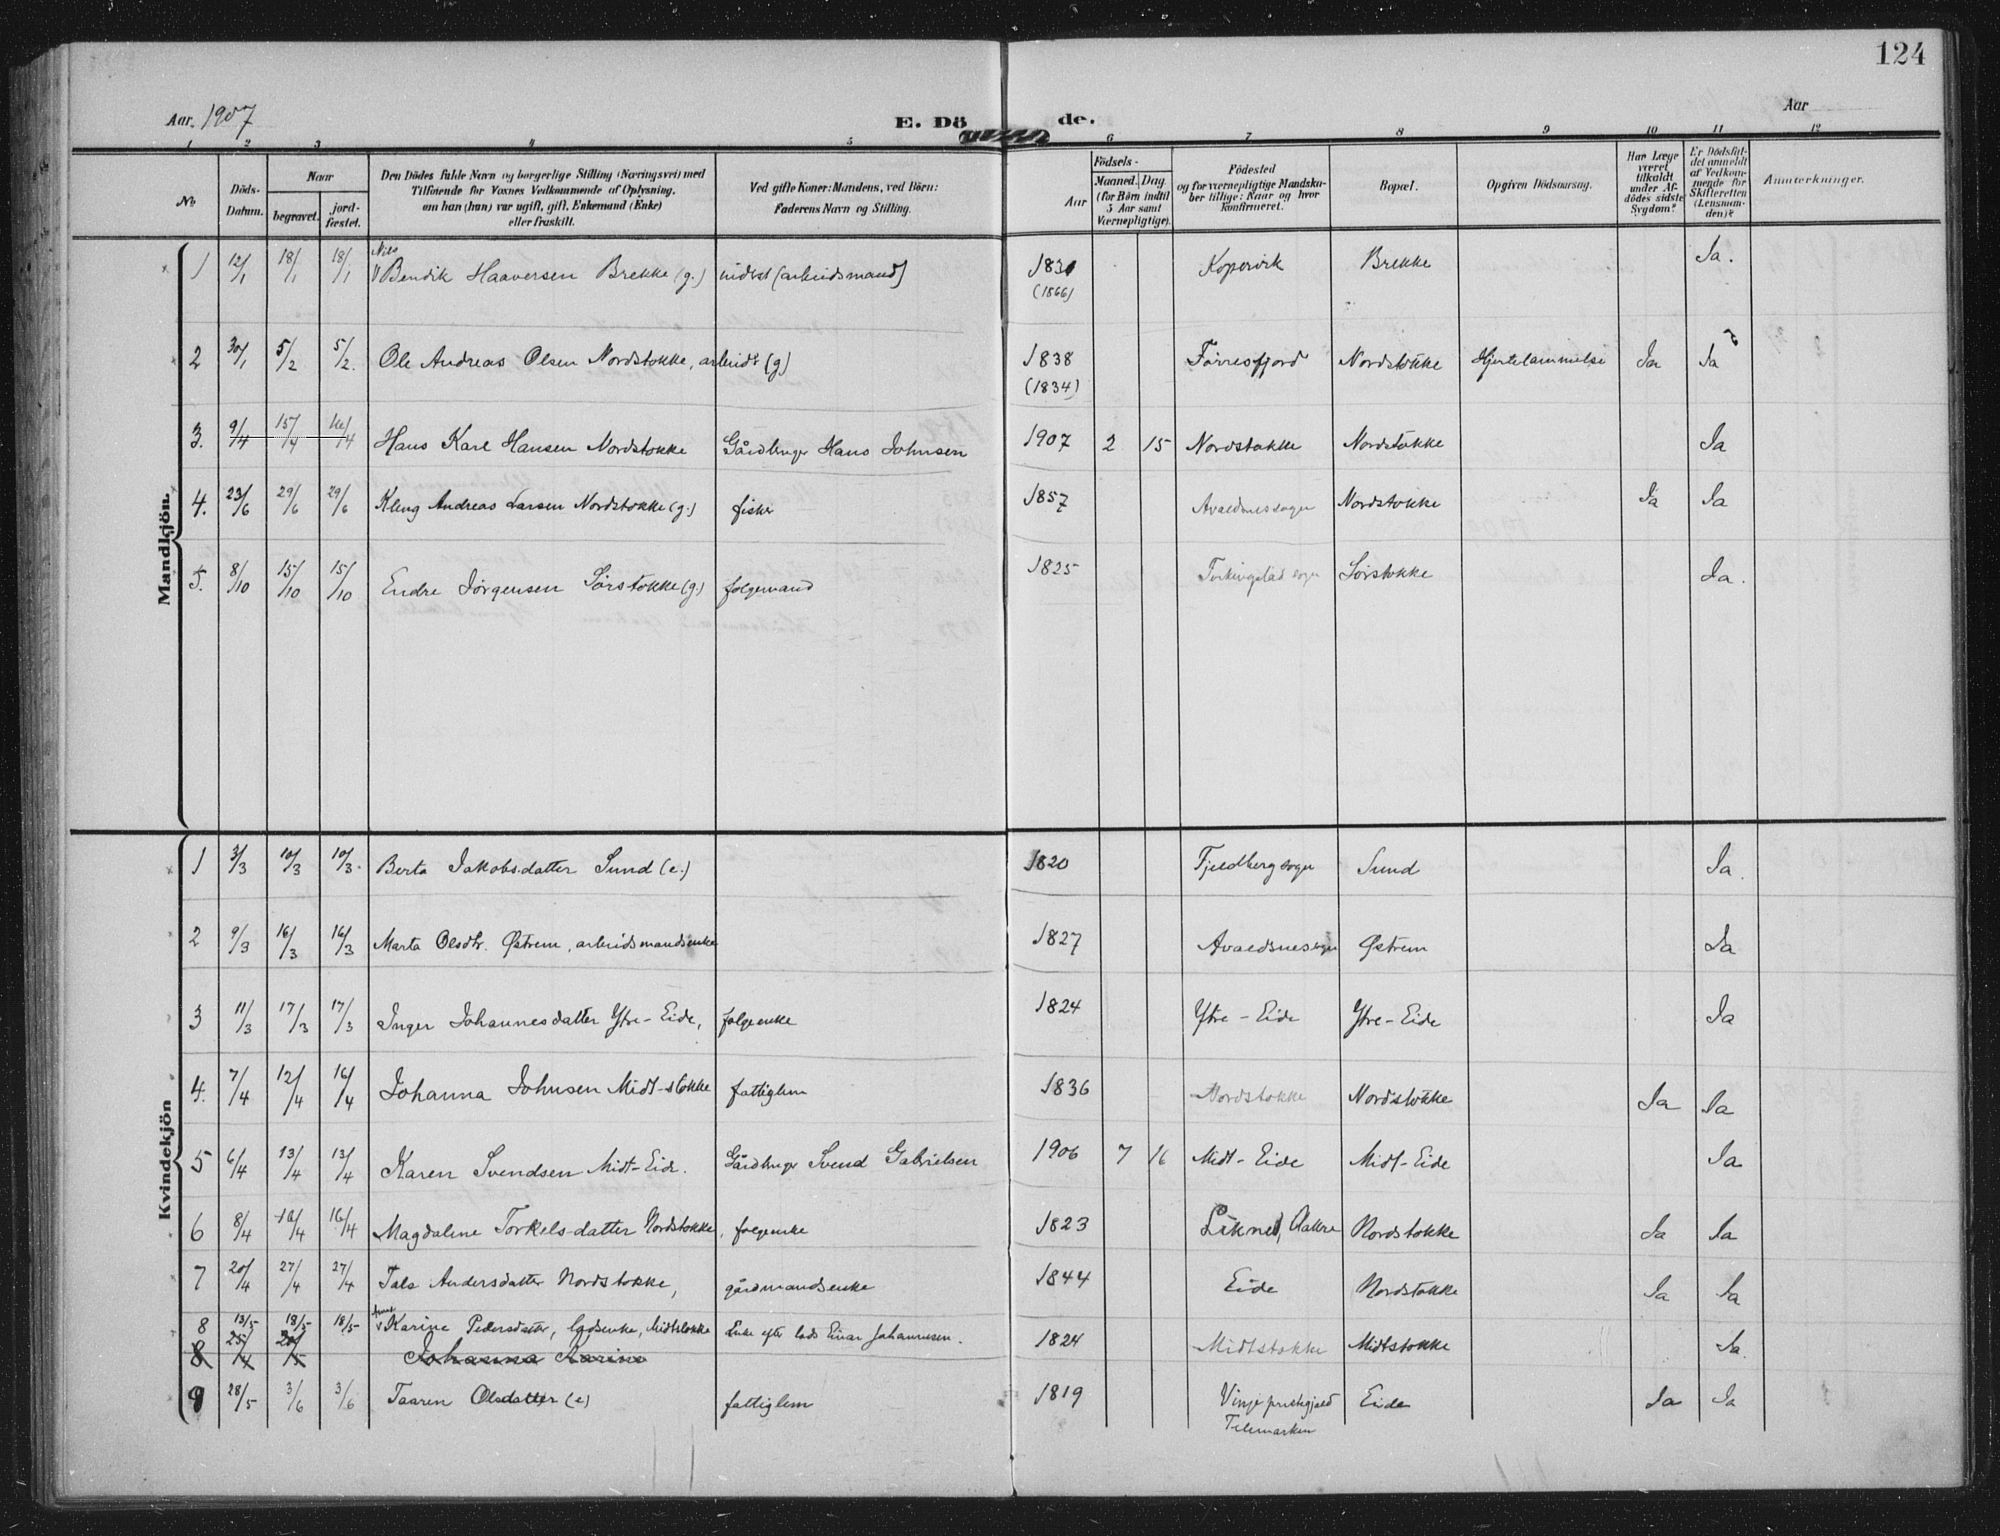 124
Aar. 1907
E. Döde.
Aar
1 2 3 4 5 6 7 8 9 10 11 12
No
Döds-Datum.
Naar
begravet.
jord-fæstet.
Den Dödes fulde Navn og borgerlige Stilling (Næringsvei) med
Tilföiende för Voxnes Vedkommende af Oplysning,
om han (hun) var ugift, gift, Enkemand (Enke)
eller fraskilt.
Ved gifte Koner: Mandens, ved Börn:
Faderens Navn og Stilling.
Födsels-
Aar
Maaned. Dag.
(for Börn indtil
5 Aar samt
Værnepligtige).
Födested
og for værnepligtige Mandska-
ber tillige: Naar og hvor
konfirmeret.
Bopæl.
Opgiven Dödsaarsag.
Har Læge
været
tilkaldt
under Af-
dödes sidste
Sygdom?
Er Dödsfal-
det anmeldt
af Vedkom-
mende for
Skifteretten
(Lensman-
den)?
Anmærkninger.
Mandkjön.
Nils
1 12/1 18/1 18/1 Bendik Haaversen Brekke (g.) indst (arbeidsmand) 1831 Kopervik Brekke Ja.
(1866)
2 30/1 5/2 5/2. Ole Andreas Olsen Nordstokke, arbeidr (g) 1838 Förresfjord Nordstokke Hjertelammelse Ja Ja
(1834)
3. 9/4 15/4 16/4 Hans Karl Hansen Nordstokke Gårdbruger Hans Johnsen 1907 2 15 Nordstokke Nordstokke Ja
4. 23/6 29/6 29/6 Kleng Andreas Larsen Nordstokke (g.) fisker 1857 Avaldsnes sogn Nordstokke Ja Ja
5. 8/10 15/10 15/10 Endre Jörgensen Sörstokke (g.) folgemand 1825 Torkingstad sogn Sörstokke Ja.
Kvindekjön
1 3/3 10/3 10/3. Berta Jakobsdatter Sund (e.) 1820 Fjeldberg sogn Sund Ja.
2 9/3 16/3 16/3 Marta Olsdtr. Østrem, arbeidsmandsenke 1827 Avaldsnes sogn Østrem Ja
3 11/3 17/3 17/3 Inger Johannesdatter Ytre-Eide, folgeenke 1824 Ytre-Eide Ytre-Eide Ja
4. 7/4 12/4 16/4 Johanna Johnsen Midt-stokke fattiglem 1836 Nordstokke Nordstokke Ja Ja
5 6/4 13/4 13/4 Karen Svendsen Midt-Eide. Gårdbruger Svend Gabrielsen 1906 7 16 Midt-Eide Midt-Eide Ja
6 8/4 16/4 16/4 Magdaline Torkelsdatter Nordstokke, folgeenke 1823 Aakre Nordstokke Ja Ja
7 20/4 27/4 27/4 Tale Andersdatter Nordstokke, gårdmandsenke 1844 Eide Nordstokke Ja Ja
8 13/5 18/5 18/5 Karine Pedersdatter, lodsenke, Midtstokke Enke efter lods Einar Johannesen. 1824 Midtstokke Midtstokke Ja.
8 25/4 Johanna Karine
9 28/5 3/6 3/6 Taaren Olsdatter (e) fattiglem 1819 Vinje prestegjæld Eide Ja Ja
Telemarken